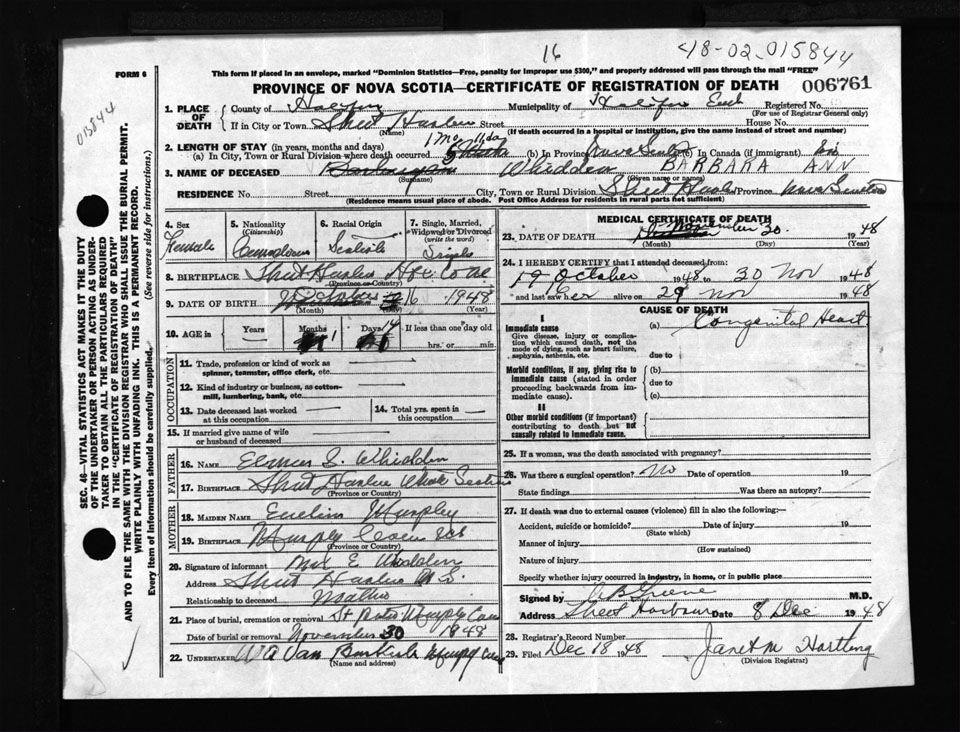 16 48-02-015844
FORM 6
This form if placed in an envelope, marked "Dominion Statistics—Free, penalty for improper use $300," and properly addressed will pass through the mail "FREE"
PROVINCE OF NOVA SCOTIA—CERTIFICATE OF REGISTRATION OF DEATH 006761
015844
SEC. 46—VITAL STATISTICS ACT MAKES IT THE DUTY
OF THE UNDERTAKER OR PERSON ACTING AS UNDER-
TAKER TO OBTAIN ALL THE PARTICULARS REQUIRED
IN THE "CERTIFICATE OF REGISTRATION OF DEATH"
AND TO FILE THE SAME WITH THE DIVISION REGISTRAR WHO SHALL ISSUE THE BURIAL PERMIT.
WRITE PLAINLY WITH UNFADING INK. THIS IS A PERMANENT RECORD.
Every item of information should be carefully supplied. (See reverse side for instructions.)
1. PLACE OF DEATH County of Halifax Municipality of Halifax East Registered No.
(For use of Registrar General only)
If in City or Town Sheet Harbour Street House No.
(Name) (If death occurred in a hospital or institution, give the name instead of street and number)
2. LENGTH OF STAY (in years, months and days) 1 Mo. 11 da
(a) In City, Town or Rural Division where death occurred (b) In Province Nova Scotia (c) In Canada (if immigrant)
3. NAME OF DECEASED Whidden BARBARA ANN
(Surname) (Given name or names)
RESIDENCE No. Street City, Town or Rural Division Sheet Harbour Province Nova Scotia
(Residence means usual place of abode. Post Office Address for residents in rural parts not sufficient)
4. Sex Female
5. Nationality (Citizenship) Canadian
6. Racial Origin
7. Single, Married, Widowed or Divorced (write the word) Single
8. BIRTHPLACE Sheet Harbour Hfx Co
(Province or Country)
9. DATE OF BIRTH October 16 1948
(Month) (Day) (Year)
10. AGE in Years Months 1 Days 14 If less than one day old
hrs. or min.
OCCUPATION
11. Trade, profession or kind of work as
spinner, teamster, office clerk, etc.
12. Kind of industry or business, as cotton-
mill, lumbering, bank, etc.
13. Date deceased last worked
at this occupation
14. Total yrs. spent in
this occupation
15. If married give name of wife
or husband of deceased
FATHER
16. NAME Elmer S. Whidden
17. BIRTHPLACE Sheet Harbour Nova Scotia
(Province or Country)
MOTHER
18. MAIDEN NAME Murphy
19. BIRTHPLACE Murphy Cove
(Province or Country)
20. Signature of informant Mrs E Whidden
Address Sheet Harbour N.S.
Relationship to deceased Mother
21. Place of burial, cremation or removal St Peters Murphy Cove
Date of burial or removal November 30 1948
22. UNDERTAKER W A Van Murphy Cove
(Name and address)
MEDICAL CERTIFICATE OF DEATH
23. DATE OF DEATH November 30 1948
(Month) (Day) (Year)
24. I HEREBY CERTIFY that I attended deceased from:
19 October 1948 to 30 Nov 1948
and last saw her alive on 29 Nov 1948
CAUSE OF DEATH
I
Immediate cause
Give disease, injury or complication which caused death, not the mode of dying, such as heart failure, asphyxia, asthenia, etc.
(a) Congenital Heart
due to
Morbid conditions, if any, giving rise to immediate cause (stated in order proceeding backwards from immediate cause).
(b)
due to
(c)
II
Other morbid conditions (if important) contributing to death but not causally related to immediate cause.
25. If a woman, was the death associated with pregnancy?
26. Was there a surgical operation? No Date of operation 19
State findings Was there an autopsy?
27. If death was due to external causes (violence) fill in also the following:—
Accident, suicide or homicide? Date of injury 19
(State which)
Manner of injury
(How sustained)
Nature of injury
Specify whether injury occurred in industry, in home, or in public place
Signed by M.D.
Address Sheet Harbour Date 8 Dec 1948
28. Registrar's Record Number
29. Filed Dec 18 1948 Janet M Hartling
(Division Registrar)